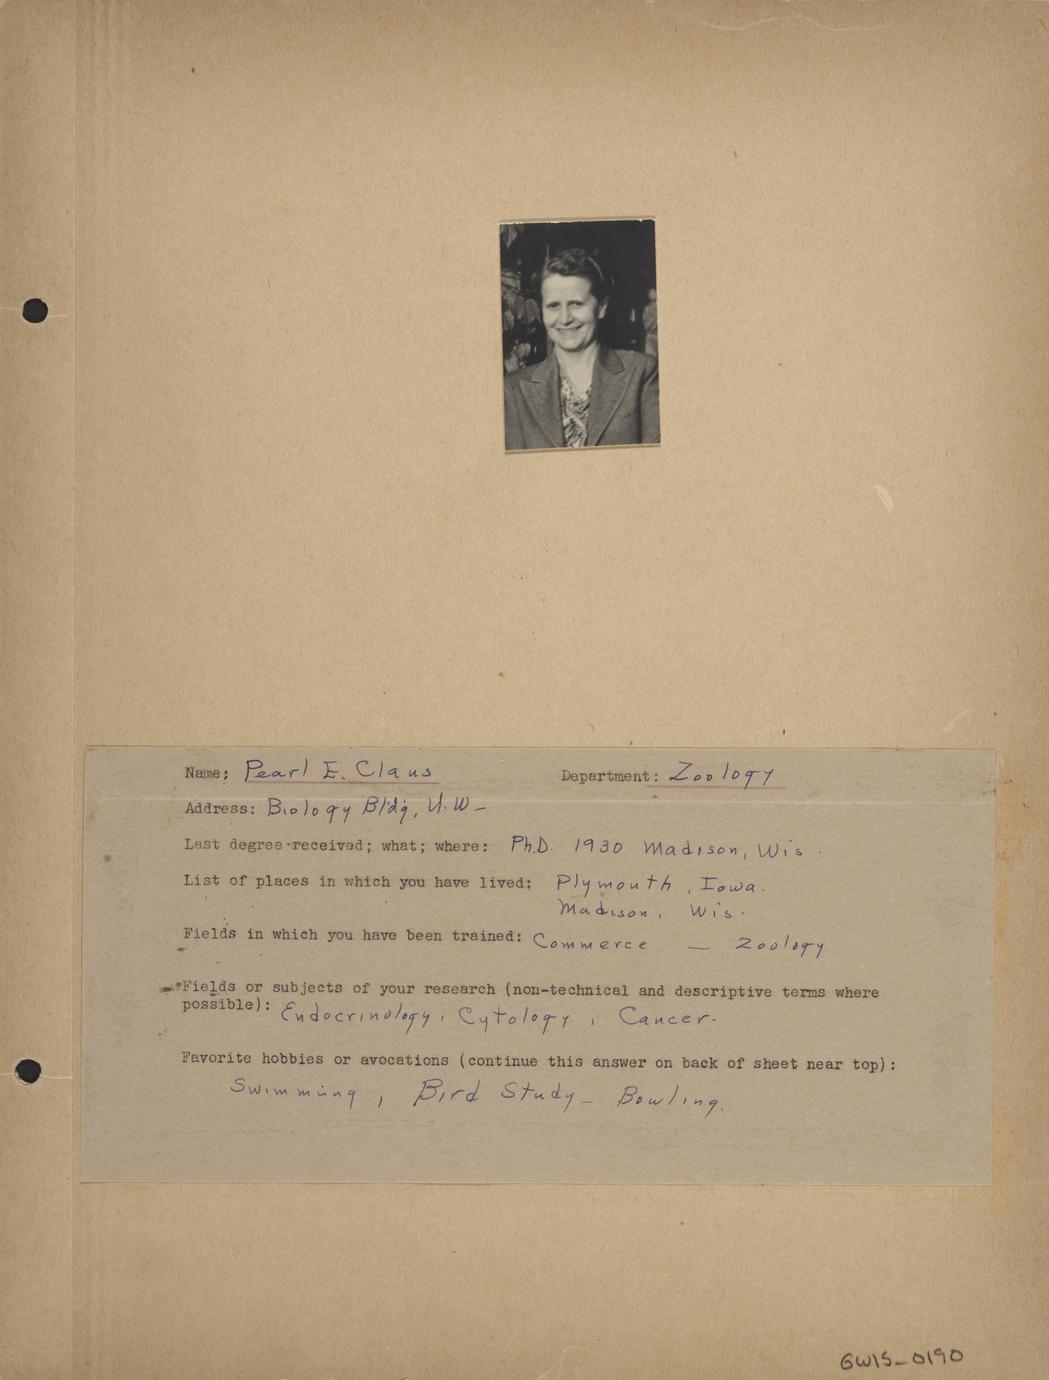 Name; Pearl E. Claus Department: Zoology
Address: Biology Bldg, U.W–
Last degree received; what; where: Ph.D. 1930 Madison, Wis.
List of places in which you have lived: Plymouth, Iowa.
Madison, Wis.
Fields in which you have been trained: Commerce — Zoology
Fields or subjects of your research (non-technical and descriptive terms where
possible): Endocrinology, Cytology, Cancer.
Favorite hobbies or avocations (continue this answer on back of sheet near top):
Swimming, Bird Study – Bowling.
GWIS-0190